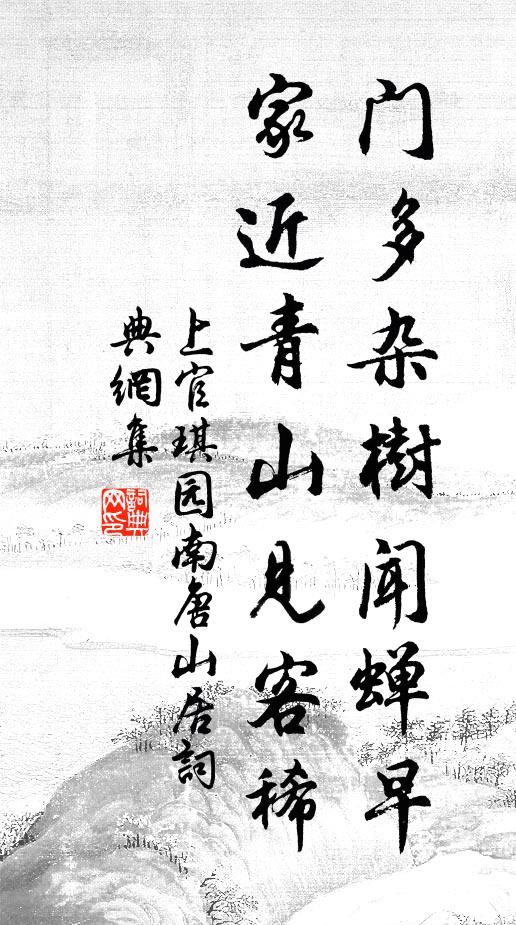 门多杂樹闻蝉早
家近青山見客稀
上官琪园南唐山居詞
典網集
詞典
网印